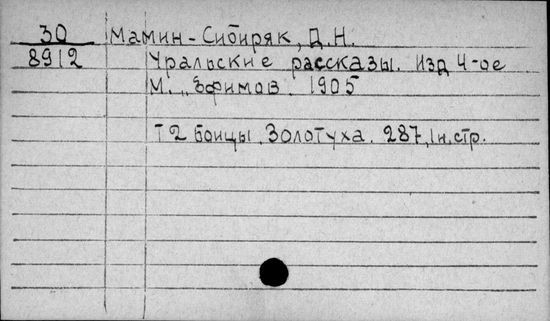 30 Мамин-Сибиряк, Д.Н.
8912 Уральские рассказы. Изд 4-ое
М. „Ефимов. 1905
Т 2 Бойцы. Золотуха. 287,1н.стр.